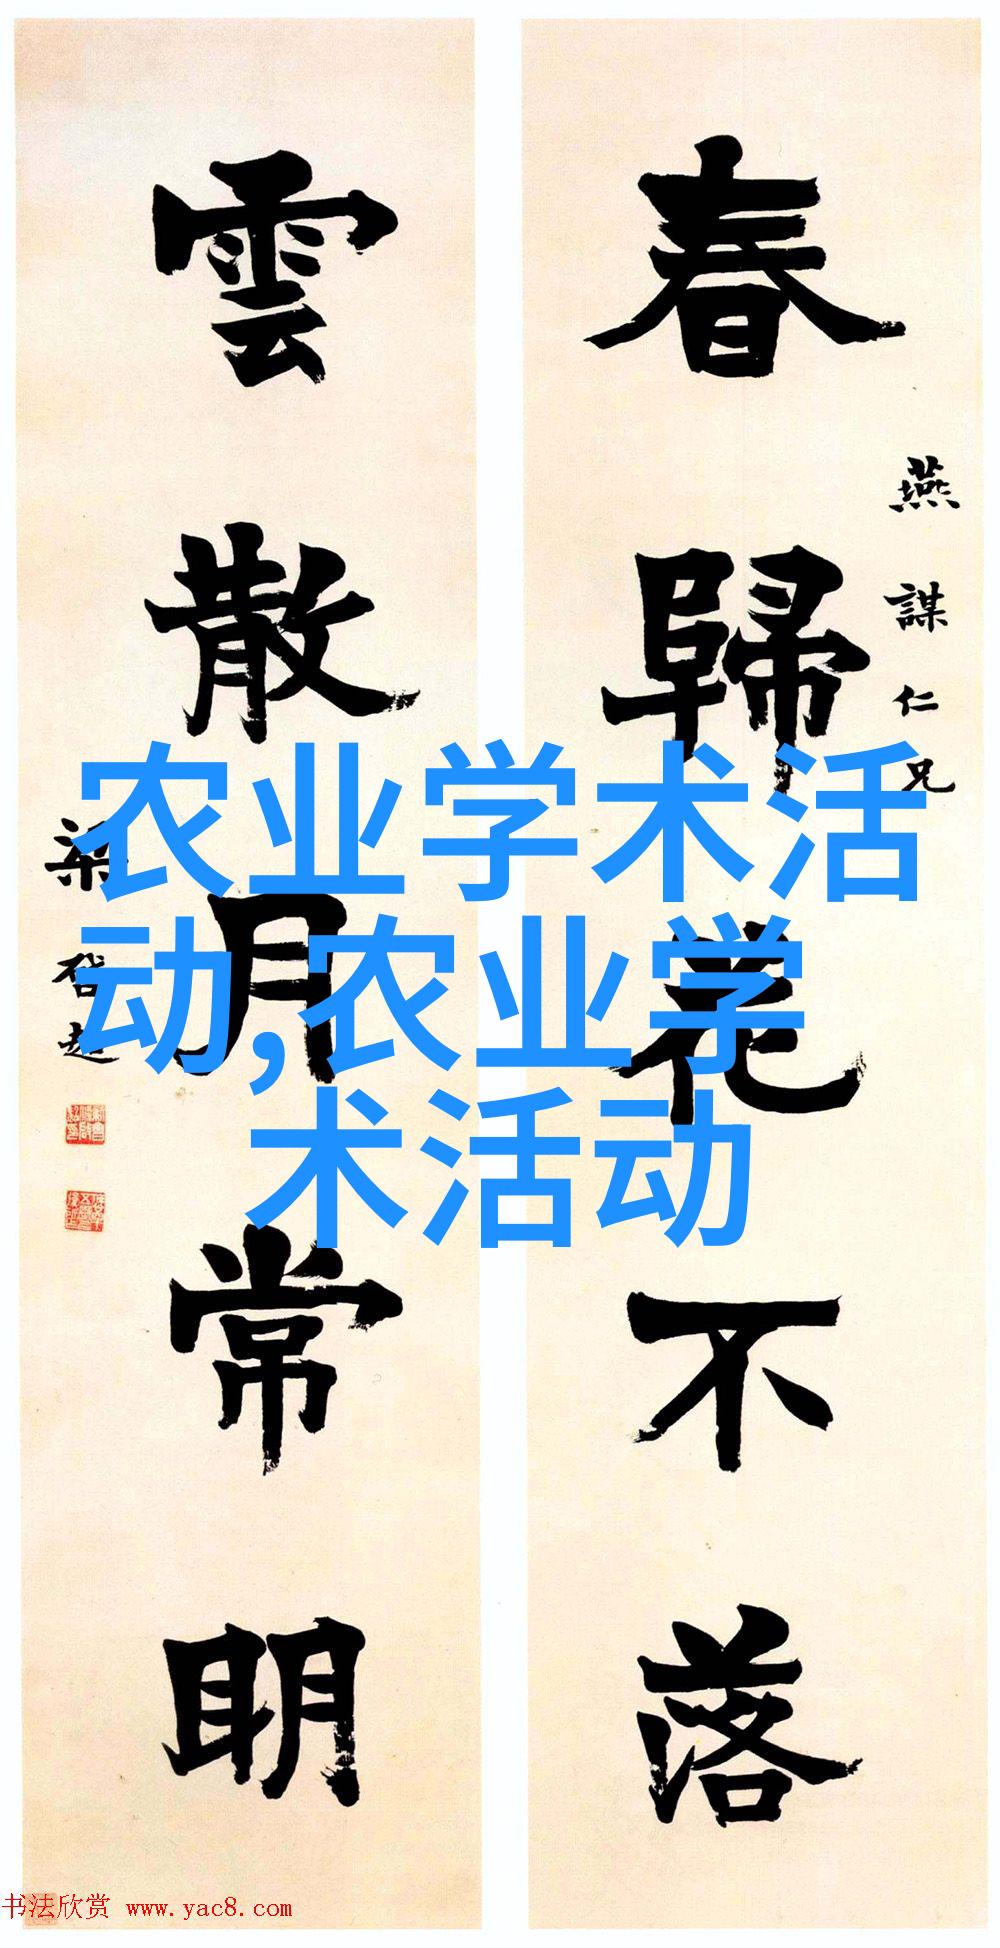 春歸花不落
燕謀仁兄
雲散月常明
梁啓超
农业学术活
动,农业学
术活动
书法欣赏 www.yac8.com